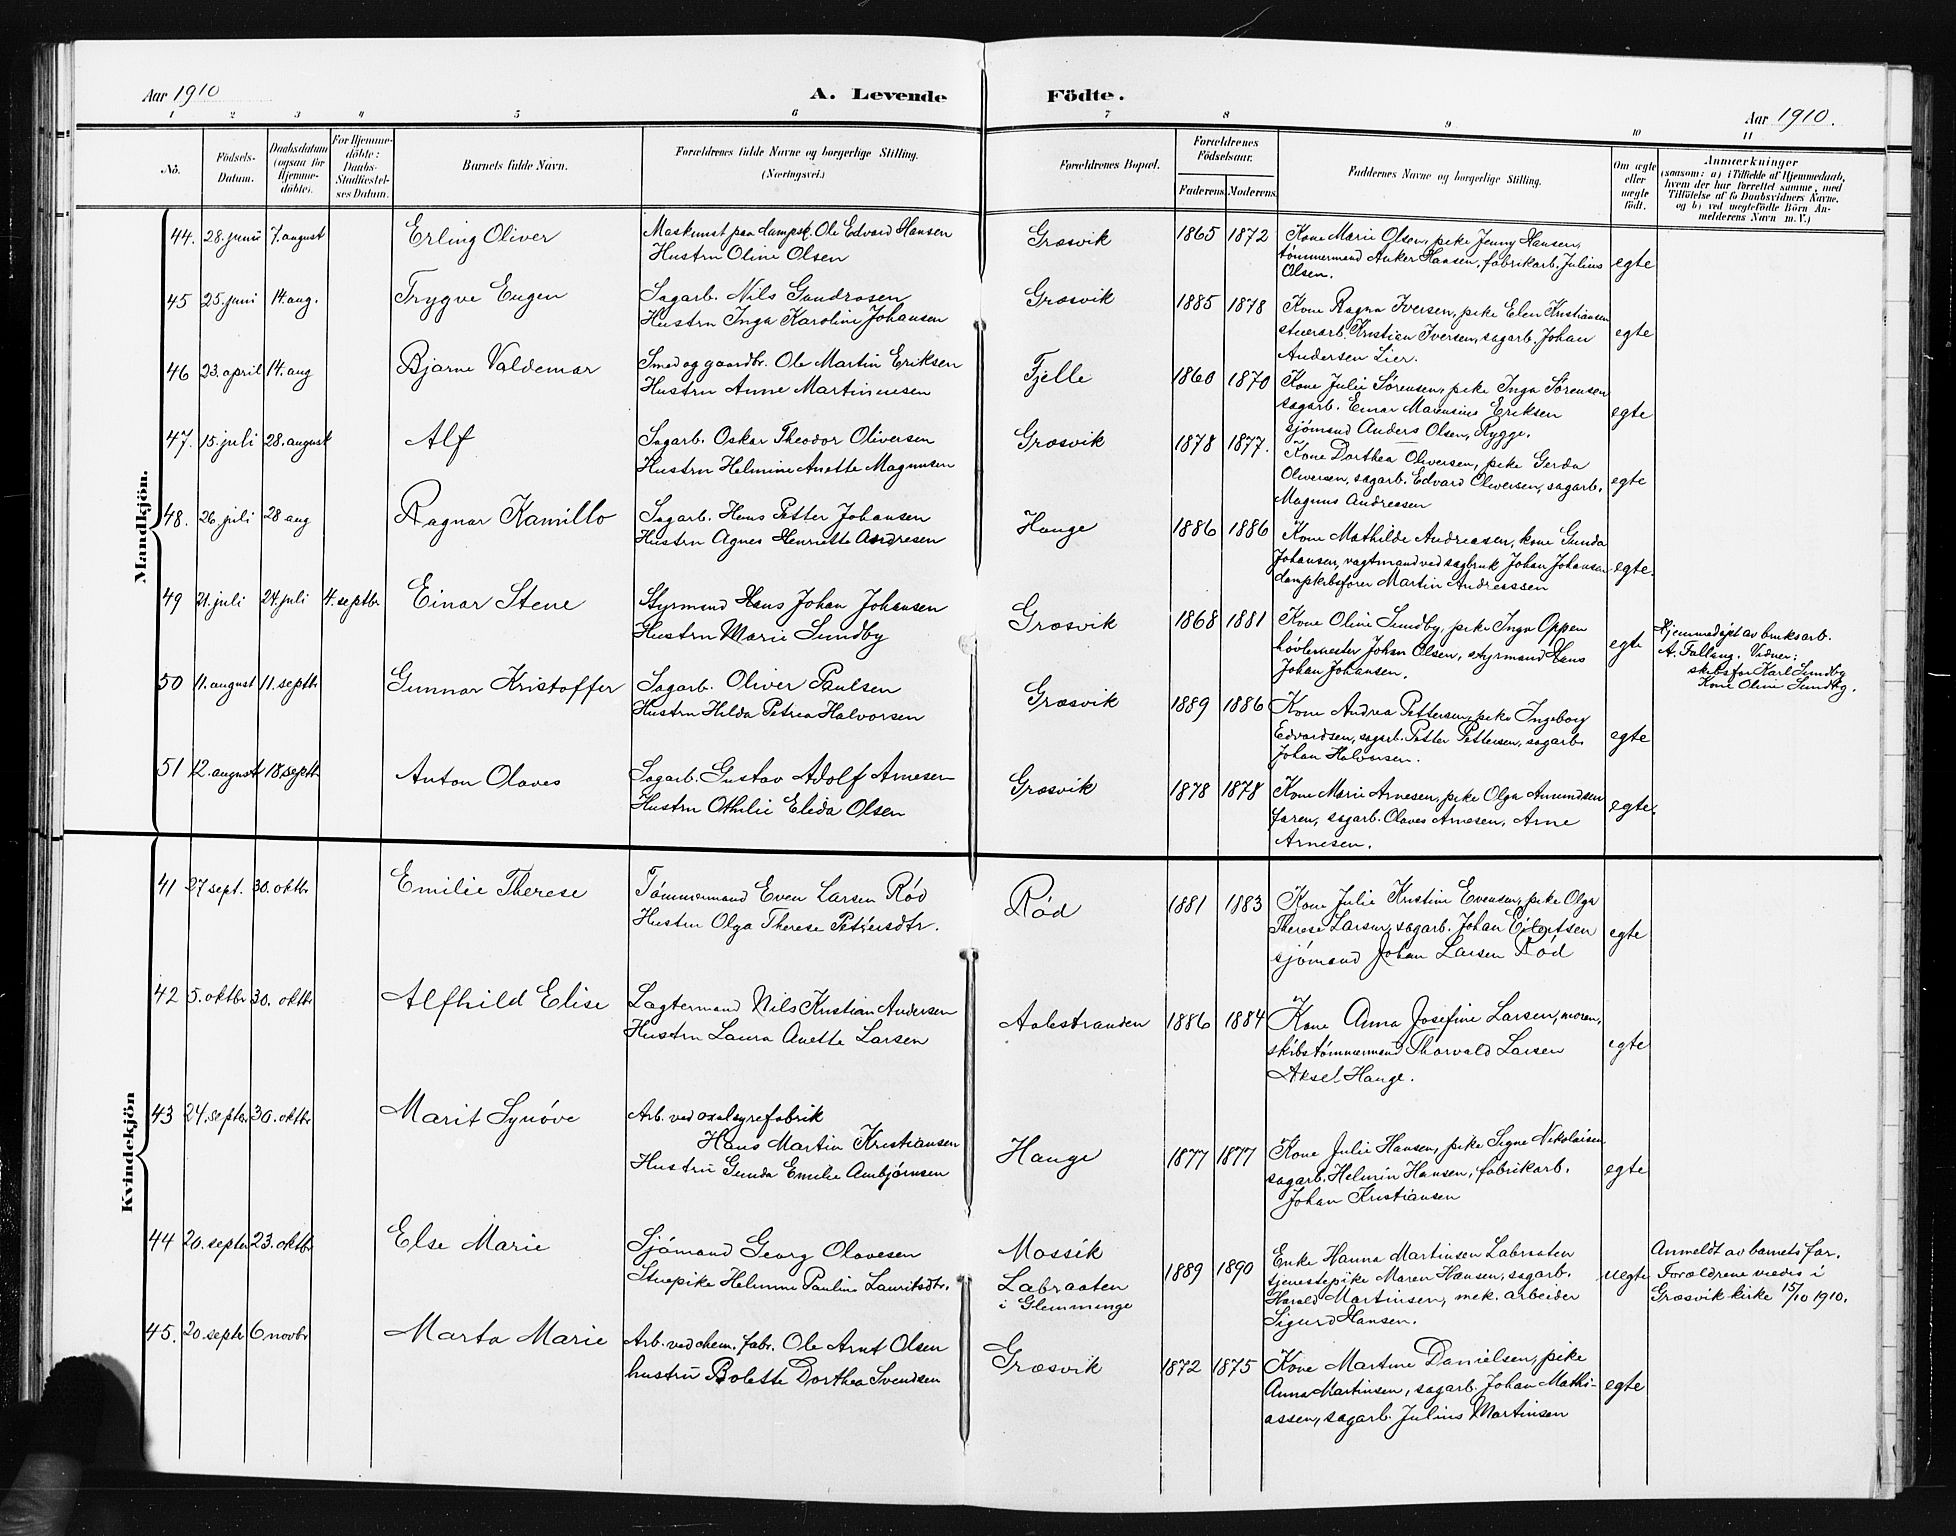 Aar 1910
A. Levende Födte.
Aar 1910.
1 2 3 4 5 6 7 8 9 10 11
No.
Födsels-Datum.
Daabsdatum (ogsaa for Hjemmedöbte).
For Hjemmedöbte: Daabs-Stadfæstelses Datum.
Barnets fulde Navn.
Forældrenes fulde Navne og borgerlige Stilling. (Næringsvei.)
Forældrenes Bopæl.
Forældrenes Födselsaar.
Faderens. Moderens.
Faddernes Navne og borgerlige Stilling.
Om ægte eller uægte födt.
Anmærkninger
(saasom: a) i Tilfælde af Hjemmedaab, hvem der har forrettet samme, med Tilföielse af to Daabsvidners Navne, og b) ved uegtefödte Börn Anmelderens Navn m. V.)
Mandkjön.
44. 28. juni 7. august Erling Oliver
Maskinist paa dampsk. Ole Edvard Hansen
Hustru Oline Olsen
Græsvik 1865 1872
Kone Marie Olsen, pike Jenny Hansen,
tømmermand Anker Hansen, fabrikarb. Julius
Olsen.
egte
45 25. juni 14. aug. Trygve Eugen
Sagarb. Nils Gundrosen
Hustru Inga Karoline Johansen
Græsvik 1885 1878
Kone Ragna Iversen, pike Elen Kristiansen
stuerarb. Kristian Iversen, sagarb. Johan
Andersen Lier.
egte
46 23. april 14. aug Bjarne Valdemar
Smed og gaardbr. Ole Martin Eriksen
Hustru Anne Martinusen
Fjelle 1860 1870
Kone Julie Sørensen, pike Inga Sørensen
sagarb. Einar Marensius Eriksen
sjömand Anders Olsen, Rygge.
egte
47. 15. juli 28. august Alf
Sagarb. Oskar Theodor Oliversen
Hustru Helmine Anette Magnusen
Græsvik 1878 1877.
Kone Dorthea Oliversen, pike Gerda
Oliversen, sagarb. Edvard Oliversen, sagarb.
Magnus Andreasen
egte
48. 26. juli 28 aug Ragnar Kamillo
Sagarb. Hans Petter Johansen
Hustru Agnes Henriette Andresen
Hauge 1886 1886
Kone Mathilde Andreasen, kone Gunda
Johansen, vagtmand ved sagbruk Johan Johansen
dampskibsfører Martin Andreassen
egte.
49 21. juli 24. juli 4. septbr Einar Stene
Styrmand Hans Johan Johansen
Hustru Marie Sundby
Græsvik 1868 1881
Kone Oline Sundby, pike Inga Oppen
høvlemester Johan Olsen, styrmand Hans
Johan Johansen.
egte
Hjemmedøpt av bruksarb.
A. Fallang. Vidner:
skibsfør Karl Sundby
Kone Oline Sundby.
50 11. august 11. septbr Gunnar Kristoffer
Sagarb. Oliver Paulsen
Hustru Hilda Petrea Halvorsen
Græsvik 1889 1886
Kone Andrea Pettersen, pike Ingeborg
Edvardsen, sagarb. Petter Pettersen, sagarb.
Johan Halvorsen.
egte
51 12. august 18. septbr Anton Olaves
Sagarb. Gustav Adolf Arnesen
Hustru Othilie Elida Olsen
Græsvik 1878 1878
Kone Marie Arnesen, pike Olga Amundsen
faren, sagarb. Olaves Arnesen, Arne
Arnesen.
egte.
Kvindekjön
41 27 sept. 30. oktbr Emilie Therese
Tömmermand Even Larsen Rød
Hustru Olga Therese Petersdtr.
Rød 1881 1883
Kone Julie Kristine Evensen, pike Olga
Therese Larsen, sagarb. Johan Eilertsen
sjömand Johan Larsen Rød
egte
42 5. oktbr 30. oktbr Alfhild Elise
Lagtermand Nils Kristian Andersen
Hustru Laura Anette Larsen
Aalestranden 1886 1884
Kone Anna Josefine Larsen, moren,
skibstømmermand Thorvald Larsen
Aksel Hauge.
egte
43 24. septbr 30. oktbr Marit Synøve
Arb. ved oxalsyrefabrik
Hans Martin Kristiansen
Hustru Gunda Emilie Ambjørnsen
Hauge 1877 1877
Kone Julie Hansen, pike Signe Nikolaisen
sagarb. Helmin Hansen, fabrikarb.
Johan Kristiansen
egte
44 20. septbr 23. oktbr Else Marie
Sjömand Georg Olavesen
Stuepike Helmine Pauline Lauritsdtr.
Mossik
Labraaten
i Glemminge
1889 1890
Enke Hanna Martinsen Labraaten
tjenestepike Maren Hansen, sagarb.
Harald Martinsen, mek. arbeider
Sigurd Hansen.
uegte
Anmeldt av barnets far.
Forældrene viedes i
Græsvik kirke 15/10 1910.
45. 20. septr 6 novbr Marta Marie
Arb. ved chem. fabr. Ole Arnt Olsen
hustru Bolette Dorthea Svendsen
Græsvik 1872 1875
Kone Martine Danielsen, pike
Anna Martinsen, sagarb. Johan Mathi-
assen, sagarb. Julius Martinsen
egte